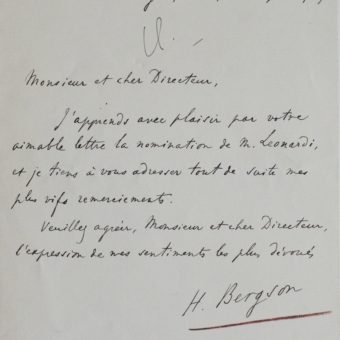 Monsieur et cher Directeur,
J'apprends avec plaisir par votre
aimable lettre la nomination de M. Leonardi,
et je tiens à vous adresser tout de suite mes
plus vifs remerciements.
Veuillez agréer, Monsieur et cher Directeur,
l'expression de mes sentiments les plus dévoués
H. Bergson